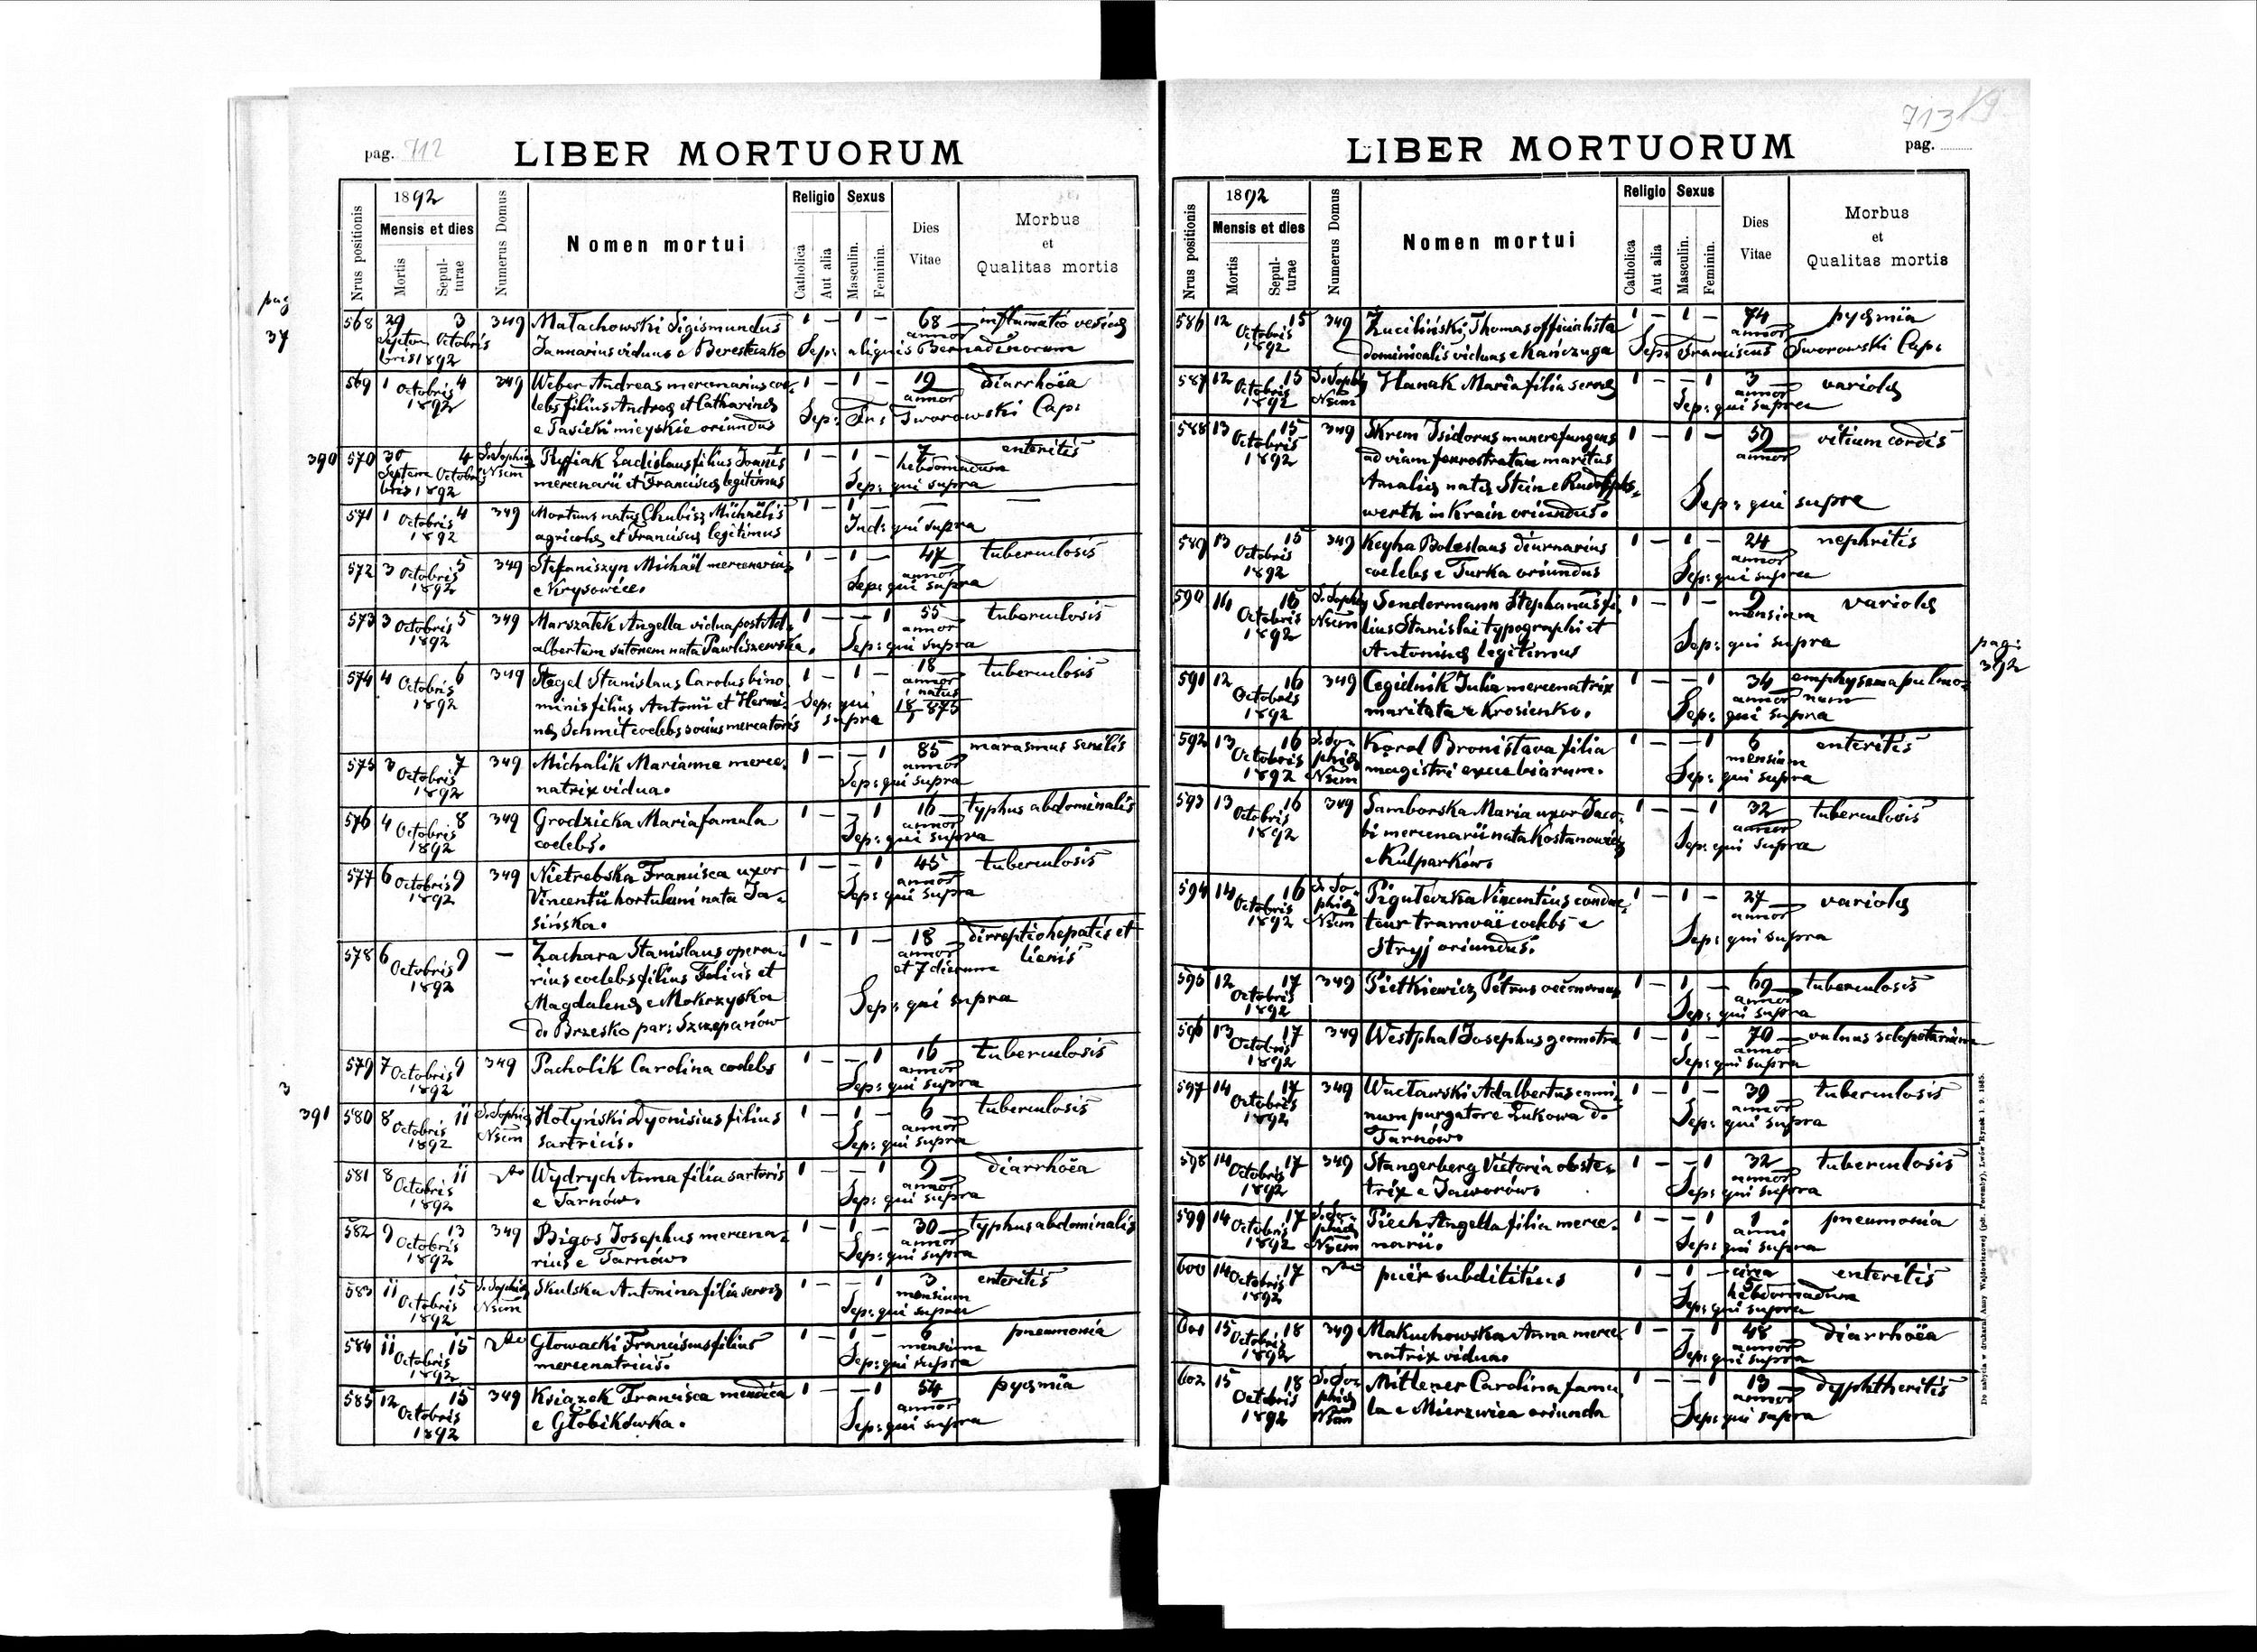 pag. 712
LIBER MORTUORUM
1892
Nrus positionis
Mensis et dies
Mortis
Sepulturae
Numerus Domus
Nomen mortui
Religio
Catholica
Aut alia
Sexus
Masculin.
Feminin.
Dies Vitae
Morbus et Qualitas mortis
pag
37
568 29 Septembris 1892 3 Octobris 349 Małachowski Sigismundus 1 – 1 – 68 annor inflamatio vesicae
Januarius viduus e Beresteczko Sep: aliquis Bernadinorum
569 1 Octobris 4 1892 349 Weber Andreas mercenarius coe- 1 – 1 – 19 annor diarrhöea
lebs filius Andreae et Catharinae
e Pasieki mieyskie oriundus Sep: Fr: Tworowski Cap:
390 570 30 Septembris 1892 4 Octobris S. Sophia Nsem Ladislaus filius Joannis 1 – 1 – 7 hebdomadum enteritis
mercenarii et Franciscae legitimus Sep: qui supra
571 1 Octobris 4 1892 349 Mortuus natus Chubisz Michaëlis 1 – 1 – —
agricolae et Franciscae legitimus Ind: qui supra
572 3 Octobris 5 1892 349 Stefaniszyn Michaël mercenarius 1 – 1 – 47 annor tuberculosis
e Krysowice. Sep: qui supra
573 3 Octobris 5 1892 349 Marszałek Angella vidua post Ad- 1 – – 1 55 annor tuberculosis
albertum sutorem nata Pawliszewska. Sep: qui supra
574 4 Octobris 6 1892 349 Stegel Stanislaus Carolus bino 1 – 1 – 18 annor tuberculosis
minis filius Antonii et Hermi- Sep: qui supra natus
nae Schmit coelebs socius mercatoris
575 3 Octobris 7 1892 349 Michalik Marianna merce- 1 – – 1 85 annor marasmus senilis
natrix vidua. Sep: qui supra
576 4 Octobris 8 1892 349 Grodzicka Maria famula 1 – – 1 16 annor typhus abdominalis
coelebs. Sep: qui supra
577 6 Octobris 9 1892 349 Nietrebska Francisca uxor 1 – – 1 45 annor tuberculosis
Vincentii hortulani nata Ja- Sep: qui supra
sińska.
578 6 Octobris 9 1892 — Zachara Stanislaus opera- 1 – 1 – 18 annor et 7 dierum dirreptio hepatis et
rius coelebs filius Felicis et lienis
Magdalenae e Mokrzyska Sep: qui supra
d. Brzesko par: Szczepanów
579 7 Octobris 9 1892 349 Pacholik Carolina coelebs 1 – – 1 16 annor tuberculosis
Sep: qui supra
3
391 580 8 Octobris 11 1892 S. Sophia Nsem Hołyński Dyonisius filius 1 – 1 – 6 annor tuberculosis
sartricis. Sep: qui supra
581 8 Octobris 11 1892 Wydrych Anna filia sartoris 1 – – 1 9 annor diarrhöea
e Tarnów. Sep: qui supra
582 9 Octobris 13 1892 349 Bigos Josephus mercena- 1 – 1 – 30 annor typhus abdominalis
rius e Tarnów. Sep: qui supra
583 11 Octobris 15 1892 S. Sophia Nsem Skulska Antonina filia servae 1 – – 1 3 mensium enteritis
Sep: qui supra
584 11 Octobris 15 1892 Głowacki Franciscus filius 1 – 1 – 6 mensium pneumonia
mercenatricis. Sep: qui supra
585 12 Octobris 15 1892 349 Książek Francisca mendica 1 – – 1 54 annor pyaemia
e Głobikówka. Sep: qui supra
713
LIBER MORTUORUM
pag.
1892
Nrus positionis
Mensis et dies
Mortis
Sepulturae
Numerus Domus
Nomen mortui
Religio
Catholica
Aut alia
Sexus
Masculin.
Feminin.
Dies Vitae
Morbus et Qualitas mortis
586 12 Octobris 15 1892 349 Żuciliński Thomas officialista 1 – 1 – 74 annor pyaemia
dominicalis viduus e Kańczuga Sep: Franciscus Sworowski Cap:
587 12 Octobris 15 1892 S. Sophia Nsem Hanak Maria filia servae 1 – – 1 3 annor variolae
Sep: qui supra
588 13 Octobris 15 1892 349 Skrem Isidorus munere fungens 1 – 1 – 59 annor vitium cordis
ad viam ferrostratam maritus
Amaliae natae Stein e Rudolphs- Sep: qui supra
werth in Krain oriundus.
589 13 Octobris 15 1892 349 Keyha Boleslaus diurnarius 1 – 1 – 24 annor nephritis
coelebs e Turka oriundus Sep: qui supra
590 14 Octobris 16 1892 S. Sophia Nsem Sendermann Stephanus fi 1 – 1 – 9 mensium variolae
lius Stanislai typographi et Sep: qui supra
Antoninae legitimus
pag: 392
591 12 Octobris 16 1892 349 Cegielnik Julia mercenatrix 1 – – 1 34 annor emphysema pulmo-
maritata e Krosienko. Sep: qui supra num
592 13 Octobris 16 1892 S. Sophia Nsem Karol Bronisława filia 1 – – 1 6 mensium enteritis
magistri excubiarum. Sep: qui supra
593 13 Octobris 16 1892 349 Samborska Maria uxor Jaco- 1 – – 1 32 annor tuberculosis
bi mercenarii nata Kostanowicz Sep: qui supra
e Kulparków.
594 14 Octobris 16 1892 S. Sophia Nsem Pigułowska Vincentius conduc- 1 – 1 – 27 annor variolae
teur tramvaï coelebs e Sep: qui supra
Stryj oriundus.
595 12 Octobris 17 1892 349 Pietkiewicz Petrus oeconomus 1 – 1 – 69 annor tuberculosis
Sep: qui supra
596 13 Octobris 17 1892 349 Westphal Josephus geometra 1 – 1 – 70 annor vulnus sclopetarium
Sep: qui supra
597 14 Octobris 17 1892 349 Wucławski Adalbertus cami- 1 – 1 – 39 annor tuberculosis
num purgator e Łukowa d. Sep: qui supra
Tarnów.
598 14 Octobris 17 1892 349 Stangerberg Victoria obste- 1 – – 1 32 annor tuberculosis
trix e Jaworów. Sep: qui supra
599 14 Octobris 17 1892 S. Sophia Nsem Piech Angella filia merce- 1 – – 1 1 anni pneumonia
narii. Sep: qui supra
600 14 Octobris 17 1892 puer subdititius 1 – 1 – circa 5 hebdomadum enteritis
Sep: qui supra
601 15 Octobris 18 1892 349 Makuchowska Anna merce 1 – – 1 48 annor diarrhöea
natrix vidua. Sep: qui supra
602 15 Octobris 18 1892 S. Sophia Nsem Mittener Carolina famu 1 – – 1 19 annor dyphtheritis
la e Mierzwica oriunda Sep: qui supra
Do nabycia w drukarni Anny Wajdowiczowej (pdt. Poremby), Lwów Rynek l. 9. 1885.